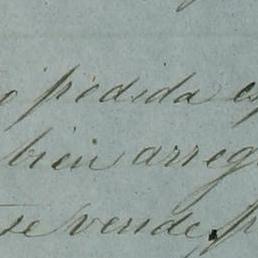 pedida
bien arreg
se vende. p